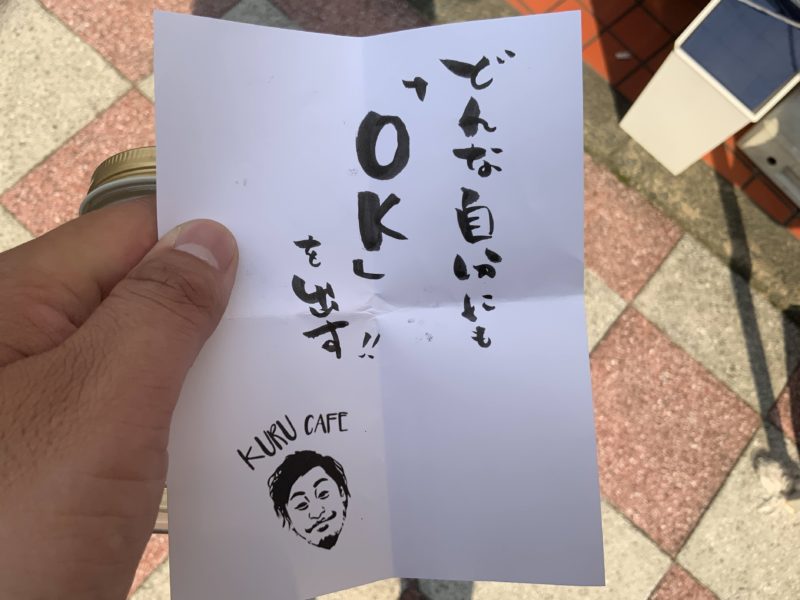 どんな自分にも
「OK」
を出す!!
KURU CAFE